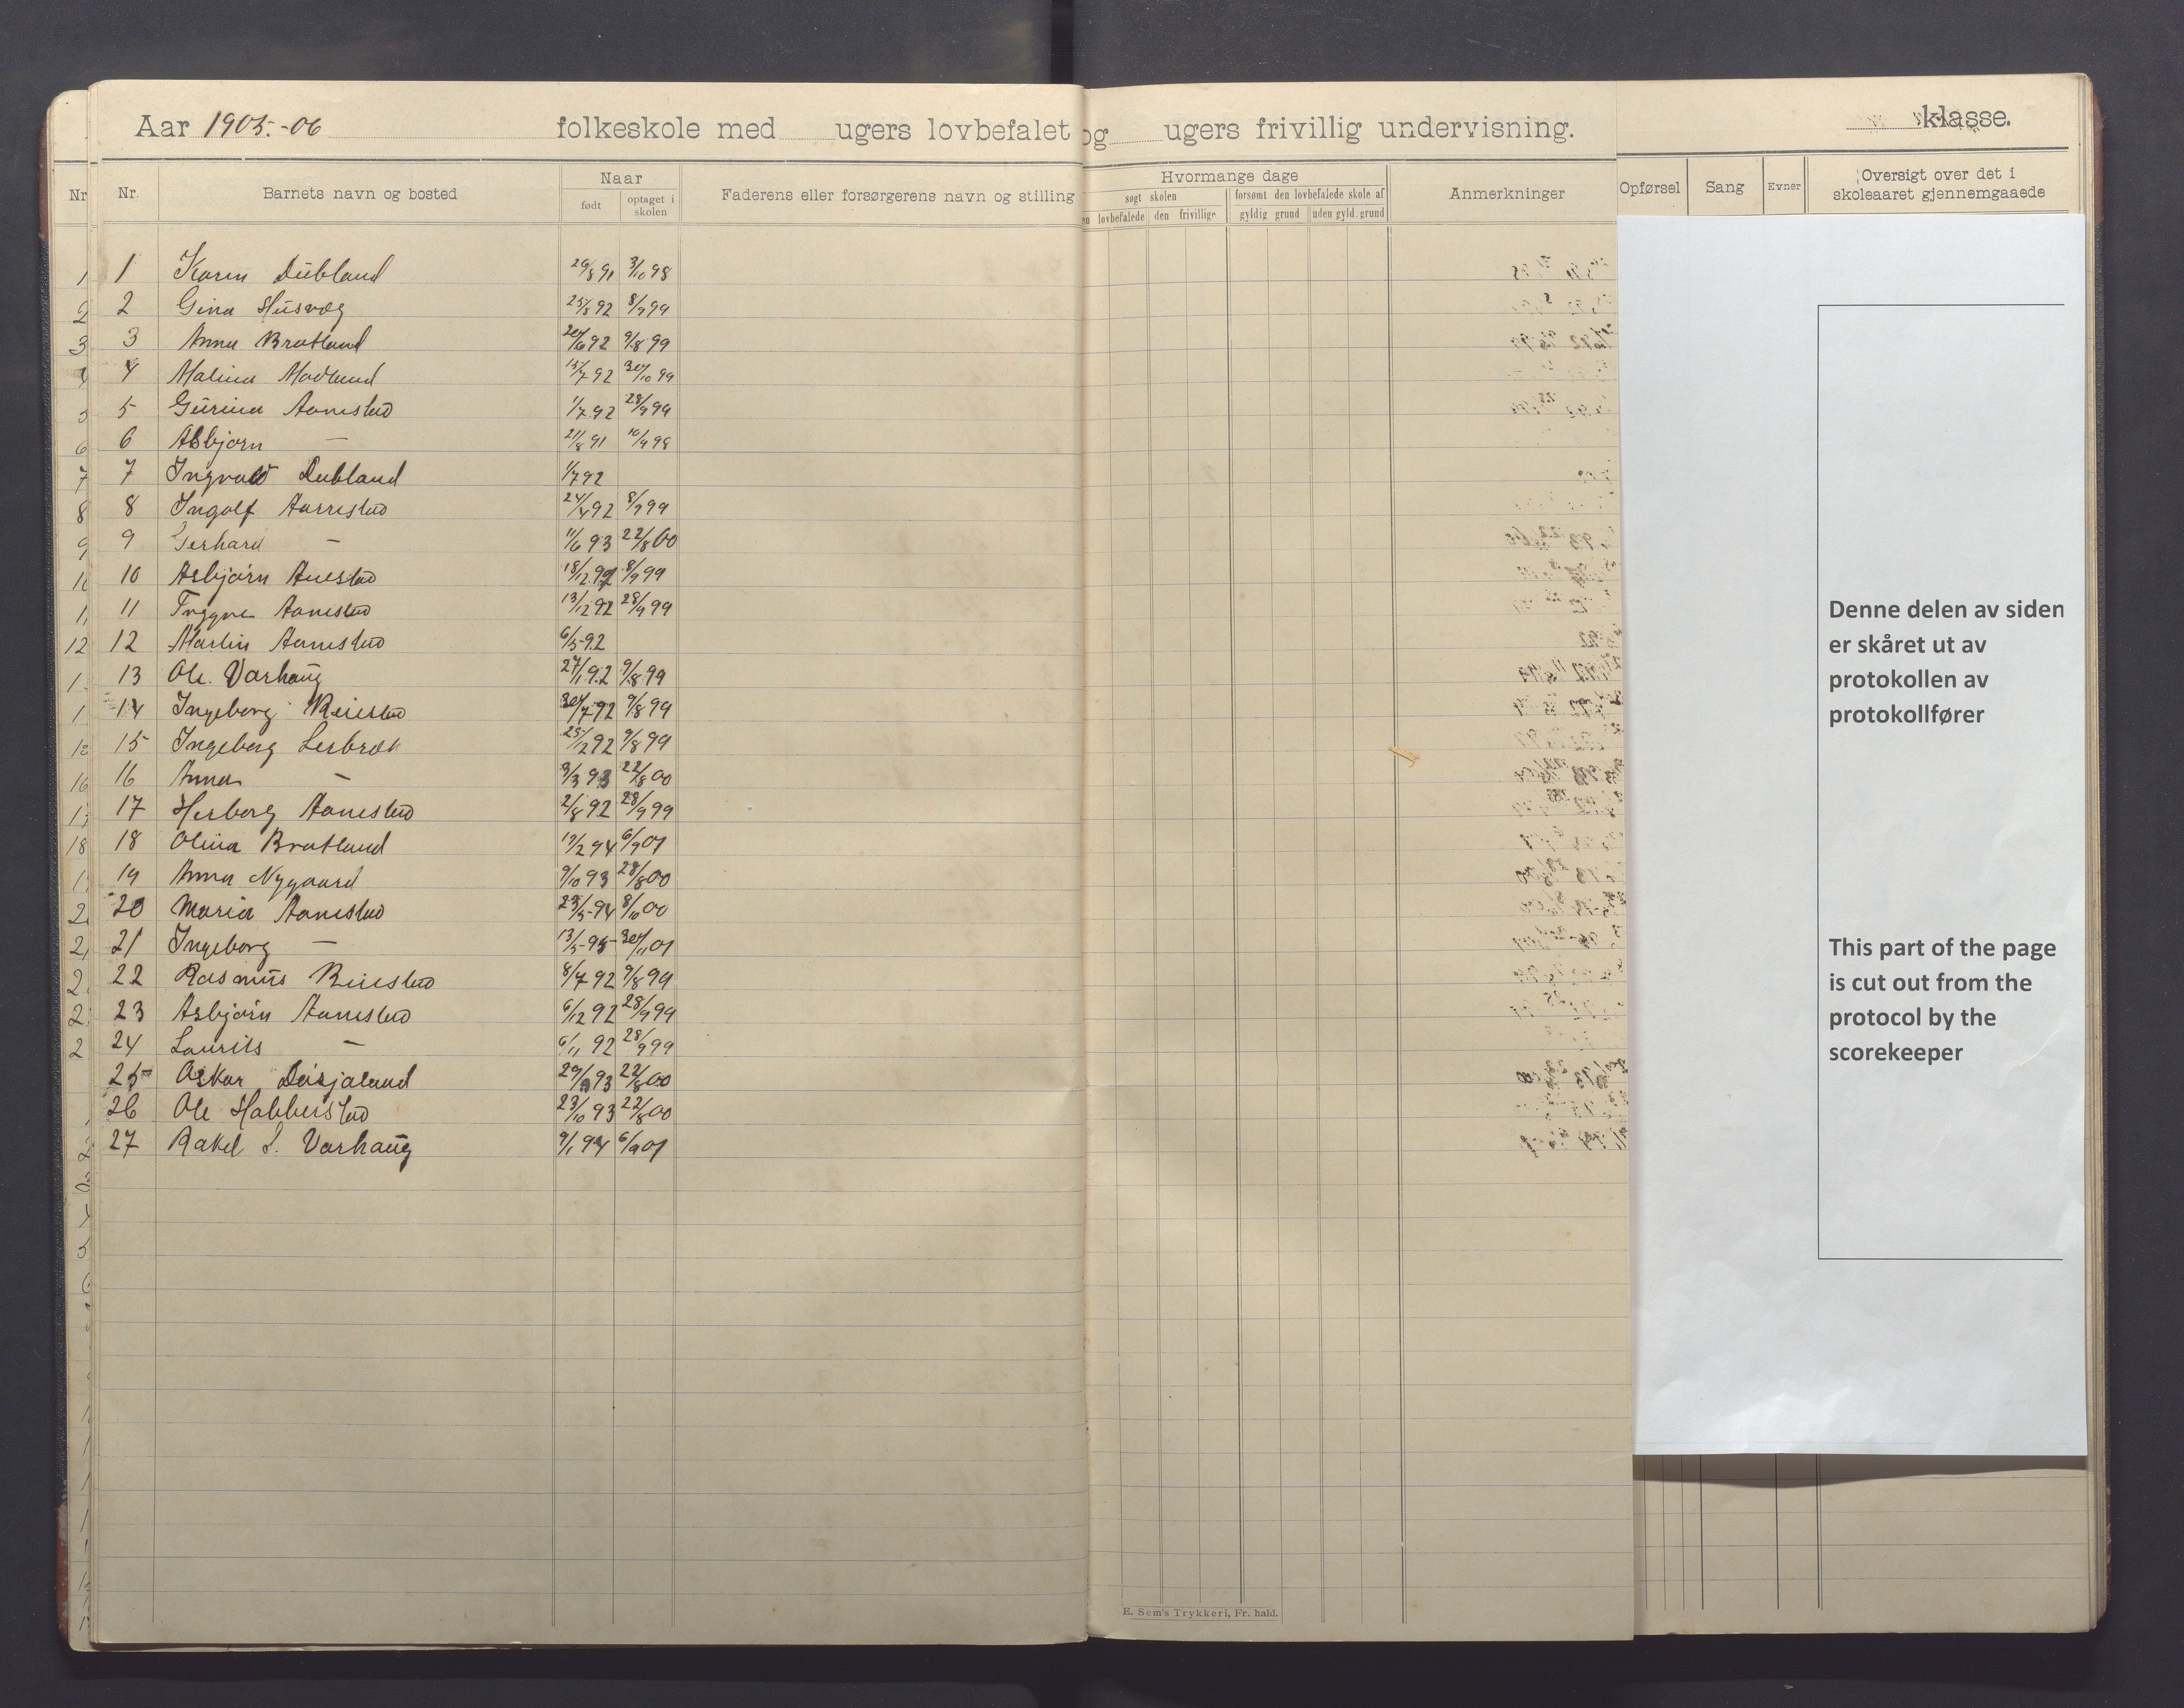 Aar 1905-06 folkeskole med ugers lovbefalet og ugers frivillig undervisning. klasse.
Nr. Nr. Barnets navn og bosted Naar født optaget i skolen Faderens eller forsørgerens navn og stilling
Hvormange dage
søgt skolen forsømt den lovbefalede skole af
lovbefalede den frivillige gyldig grund uden gyld. grund
Anmerkninger
Opførsel Sang Evner Oversigt over det i
skoleaaret gjennemgaaede
1 Karen Dubland 26/8 91 3/10 98
2 Gina Husvæg 25/8 92 8/9 99
3 Anna Bratland 20/6 92 9/8 99
4 Malina Modland 15/7 92 30/10 99
5 Gurina Aanestad 1/7 92 28/9 99
6 Asbjørn — 21/8 91 10/9 98
7 Ingvald Dubland 1/7 92
8 Ingolf Aarrestad 24/4 92 8/9 99
9 Gerhard — 11/6 93 22/8 00
10 Asbjørn Auestad 18/12 92 8/9 99
11 Trygve Aanestad 13/12 92 28/9 99
12 Martin Aanestad 6/5 92
13 Ole Varhaug 27/1 92 9/8 99
14 Ingeborg Reiestad 30/7 92 9/8 99
15 Ingeborg Lerbræk 25/12 92 9/8 99
16 Anna — 3/3 93 22/8 00
17 Herborg Aanestad 2/8 92 28/9 99
18 Olina Bratland 19/2 94 6/9 01
19 Anna Nygaard 9/10 93 28/8 00
20 Maria Aanestad 23/5 94 8/10 00
21 Ingeborg — 13/5 95 30/11 01
22 Rasmus Reiestad 8/7 92 9/8 99
23 Asbjørn Aanestad 6/12 92 28/9 99
24 Laurits — 6/11 92 28/9 99
25 Oskar Dusjaland 29/3 93 22/8 00
26 Ole Habberstad 23/10 93 22/8 00
27 Rakel S. Varhaug 9/1 94 6/9 01
Denne delen av siden
er skåret ut av
protokollen av
protokollfører
This part of the page
is cut out from the
protocol by the
scorekeeper
E. Sem's Trykkeri, Fr. hald.